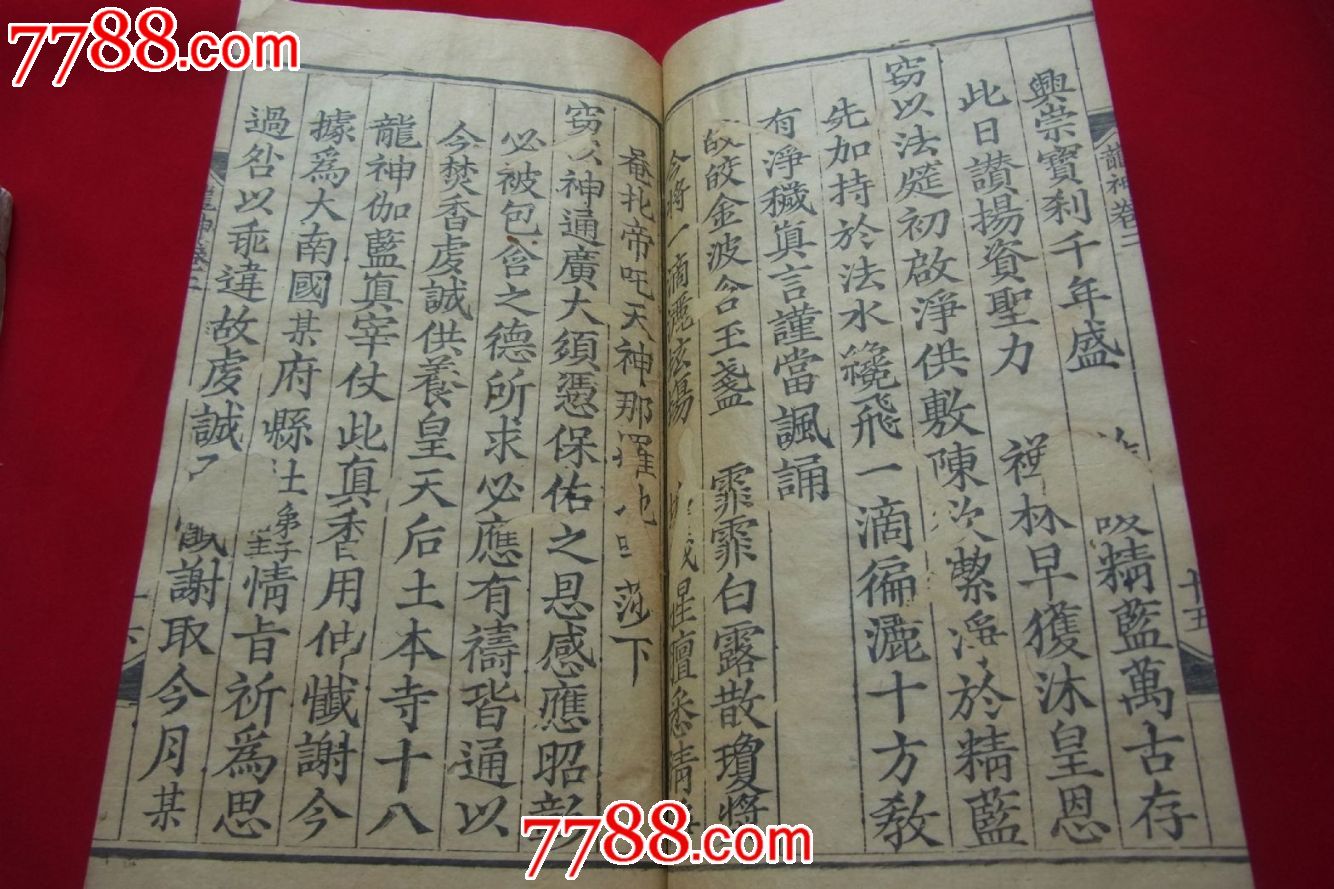 7788.com
7788.com
龍神卷二
十五
興崇寶刹千年盛 精藍萬古存
此日讃揚資聖力 禅林早獲沐皇恩
窃以法筵初啟淨供敷陳次潔淨於精藍
先加持於法水纔飛一滴徧灑十方教
有淨穢真言謹當諷誦
皎金波含玉盞 霏霏白露散瓊將
今將一滴灑 星壇悉清
菴扎帝吒天神那羅 莎下
窃以神通廣大須憑保佑之恩感應昭彰
必被包含之德所求必應有禱皆通以
今焚香虔誠供養皇天后土本寺十八
龍神伽藍真宰仗此真香用伸懺謝今
據為大南國某府縣社弟子情旨祈為思
過咎以乖違故虔誠 謝取今月某
7788.com